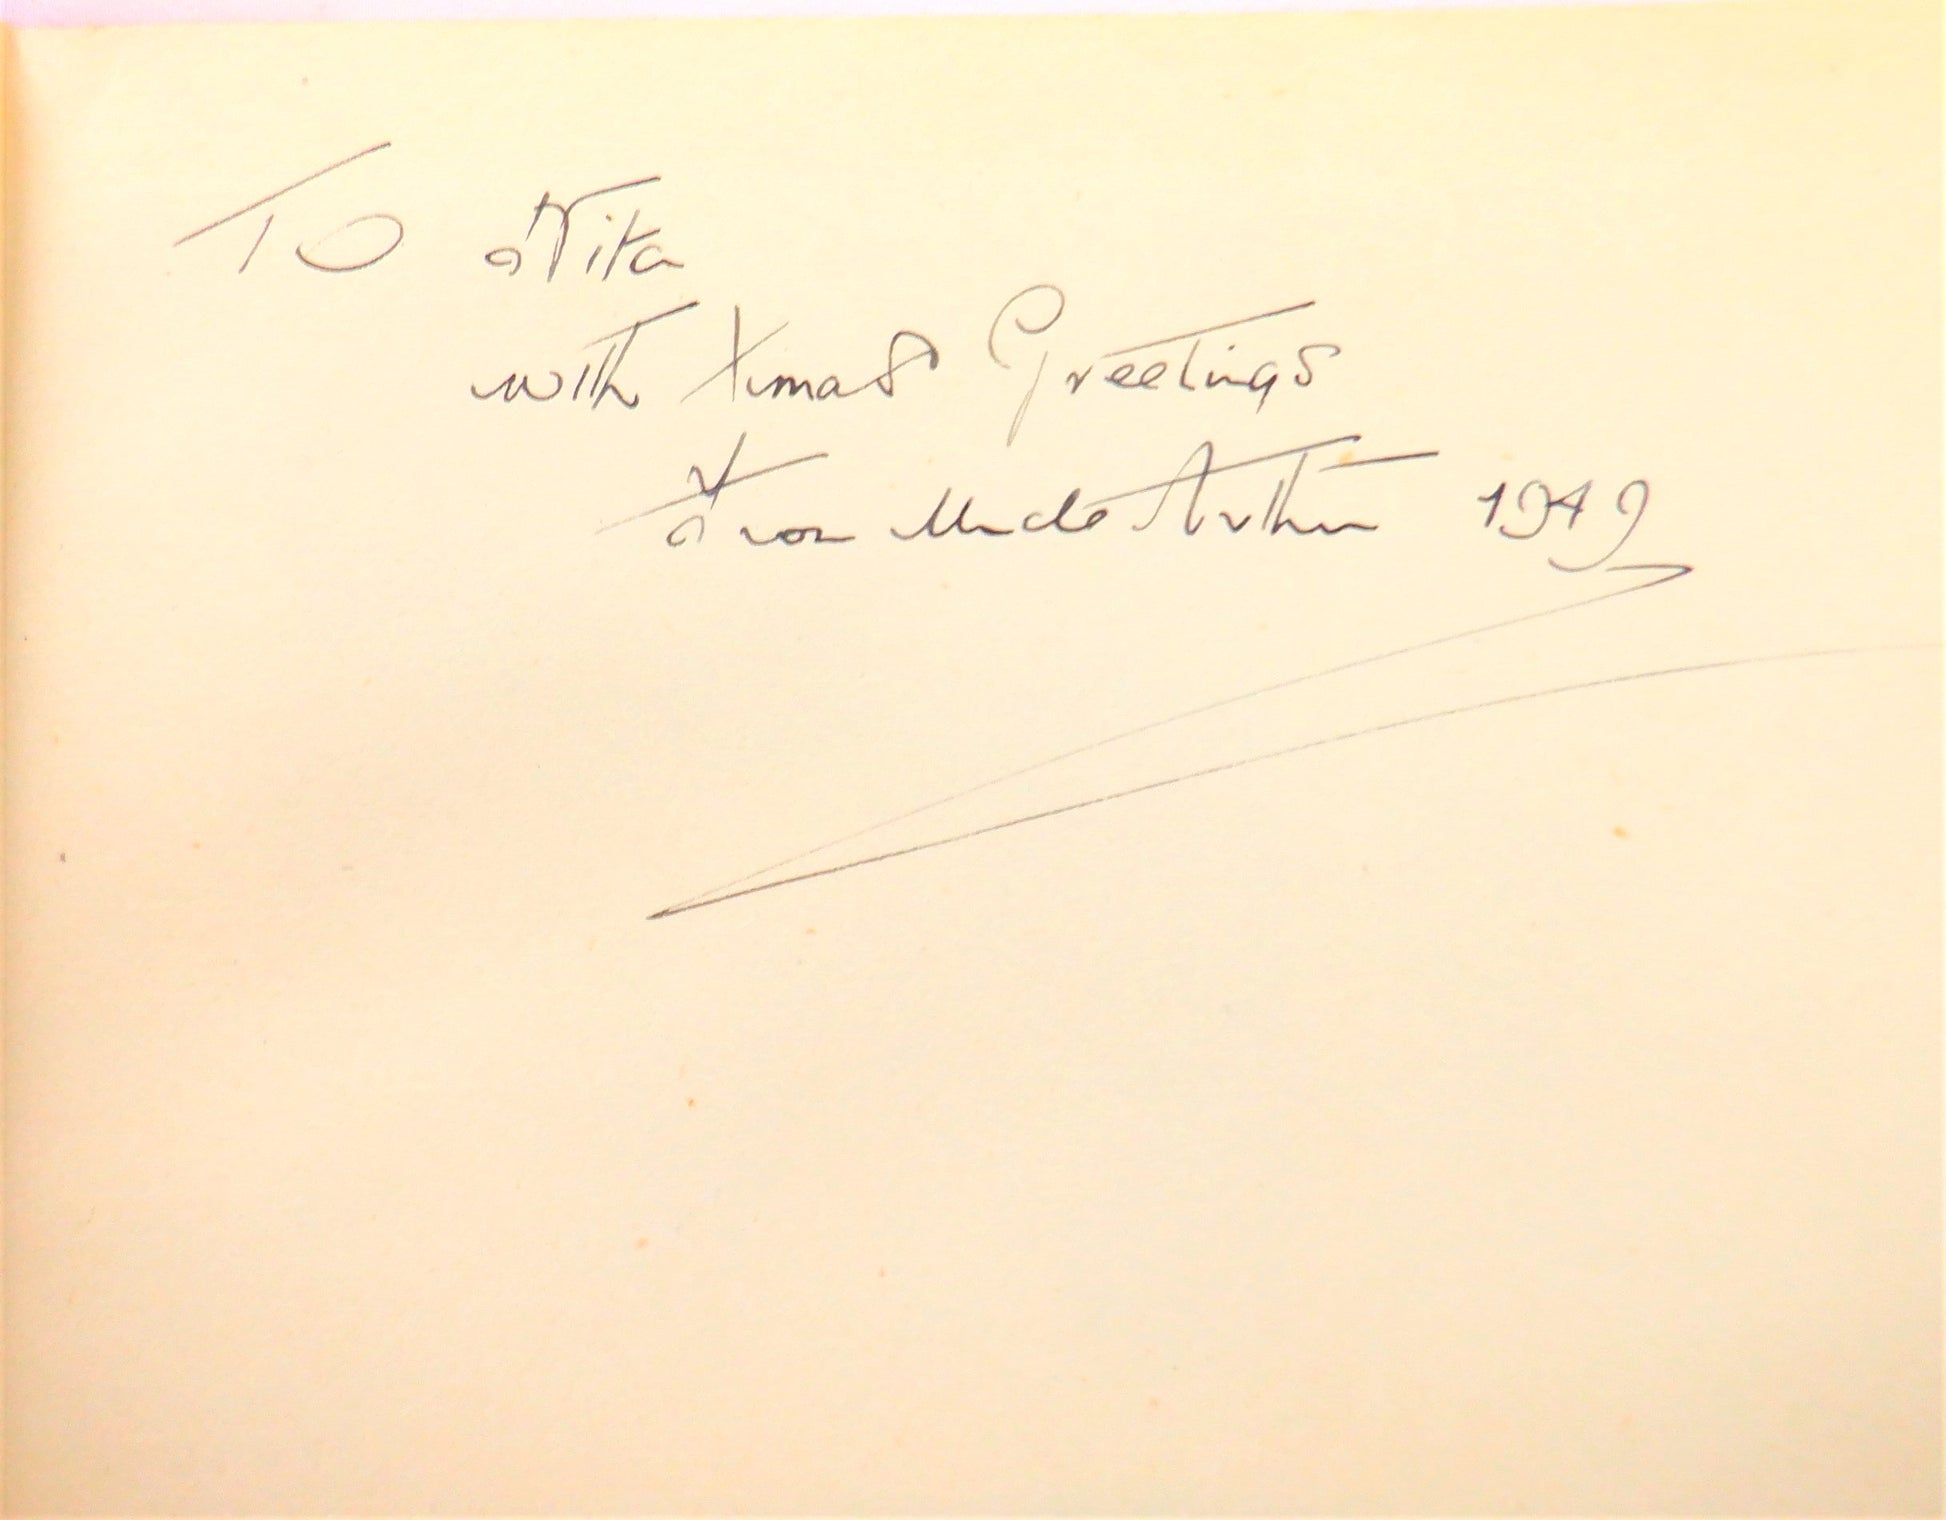 To Nita
with Xmas Greetings
from Uncle Arthur 1949